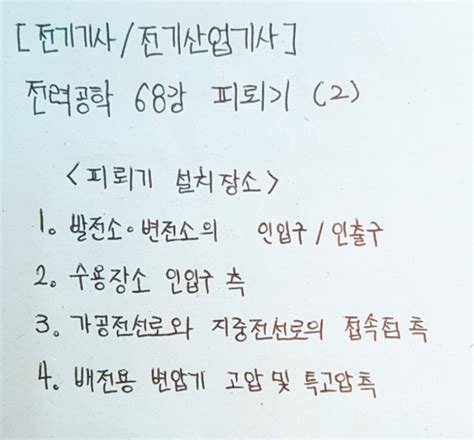 [전기기사/전기산업기사]
전력공학 68강 피뢰기 (2)
<피뢰기 설치장소>
1. 발전소·변전소의 인입구/인출구
2. 수용장소 인입구 측
3. 가공전선로와 지중전선로의 접속점 측
4. 배전용 변압기 고압 및 특고압측